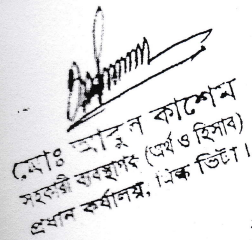 মোঃ আবুল কাশেম
সহকারী ব্যবস্থাপক (অর্থ ও হিসাব)
প্রধান কার্যালয়, মিল্ক ভিটা।